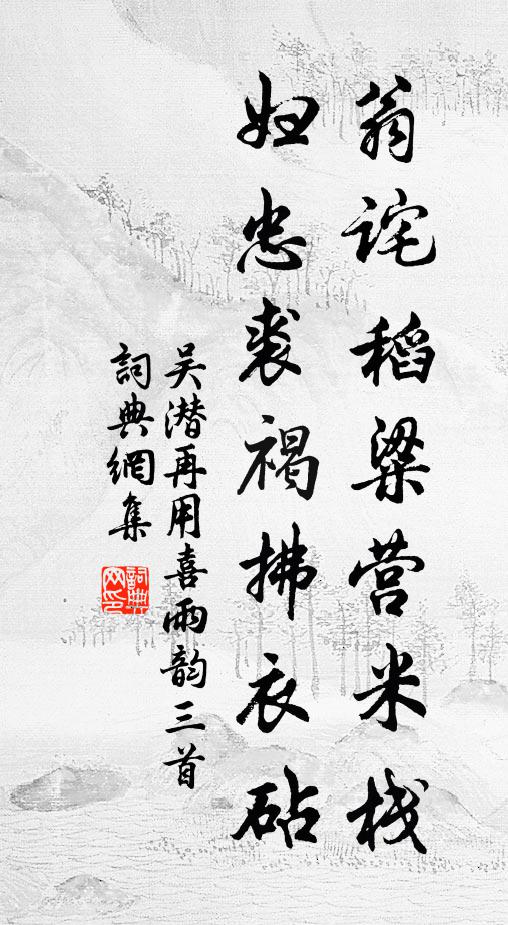 翁诧稻粱营米栈
妇忠裘褐拂衣砧
吴潜再用喜雨韵三首
詞典網集
詞典网印